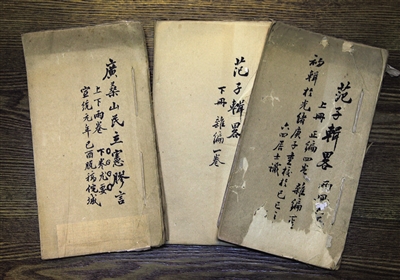 范子輯畧
上冊 正編四卷 雜編
初輯於光緒庚子重核於己巳
六四居士識
范子輯畧
下冊 雜編一卷
廣桑山民立憲膠言
上下兩卷 下卷尤要
宣統元年己酉脫稿皖城